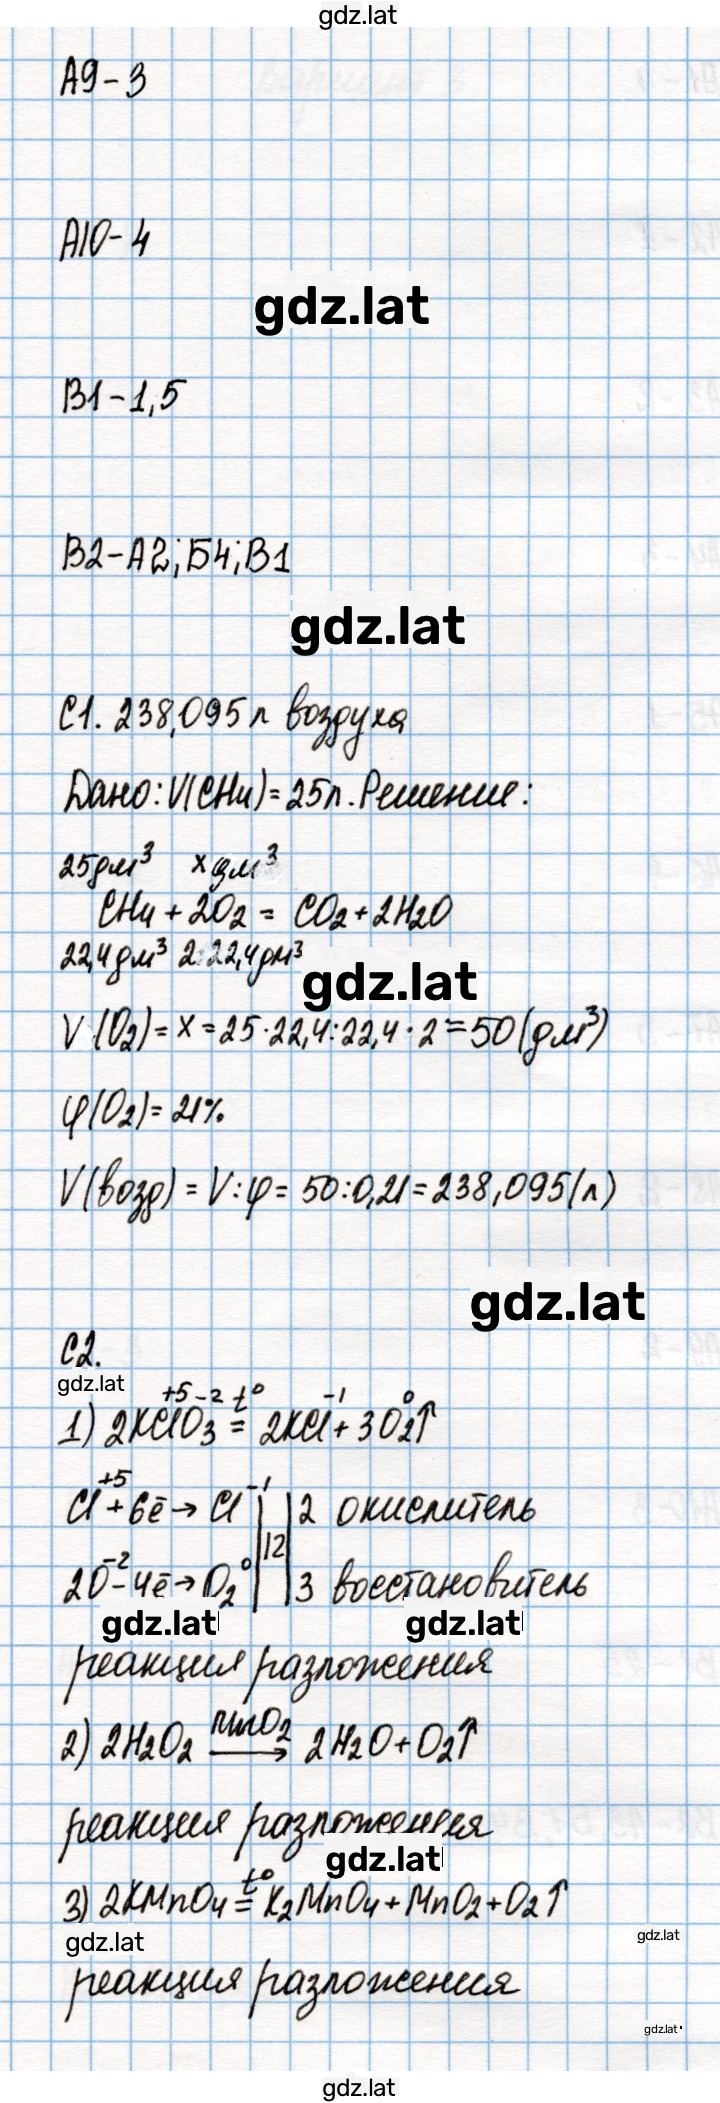 gdz.lat
А9-3
А10-4
gdz.lat
В1-1,5
В2-А2; Б4; В1
gdz.lat
С1. 238,095 л воздуха
Дано: V(CH₄)=25л. Решение:
25дм³ x дм³
CH₄ + 2O₂ = CO₂ + 2H₂O
22,4дм³ 2·22,4дм³
gdz.lat
V (O₂) = x = 25·22,4:22,4·2 = 50 (дм³)
φ(O₂) = 21%
V(возд) = V:φ = 50:0,21 = 238,095 (л)
gdz.lat
С2.
gdz.lat
+5 -2 t° -1 0
1) 2KClO₃ = 2KCl + 3O₂↑
Cl⁺⁵ + 6ē → Cl⁻¹ | | 2 окислитель
12
2O⁻² - 4ē → O₂⁰ | | 3 восстановитель
gdz.lat gdz.lat
реакция разложения
MnO₂
2) 2H₂O₂ → 2H₂O + O₂↑
реакция разложения
gdz.lat
t°
3) 2KMnO₄ = K₂MnO₄ + MnO₂ + O₂↑
gdz.lat gdz.lat
реакция разложения
gdz.lat
gdz.lat